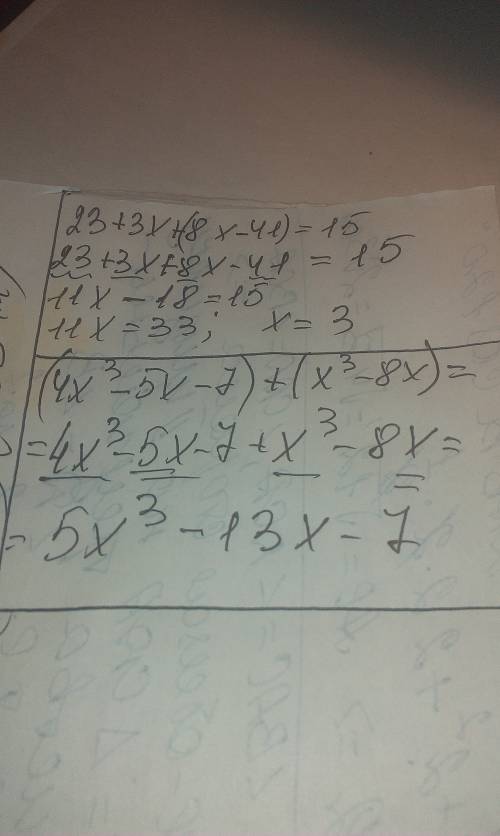 23+3x+(8x-41)=15
23+3x+8x-41=15
11x-18=15
11x=33; x=3
(4x³-5x-7)+(x³-8x)=
=4x³-5x-7+x³-8x=
=5x³-13x-7